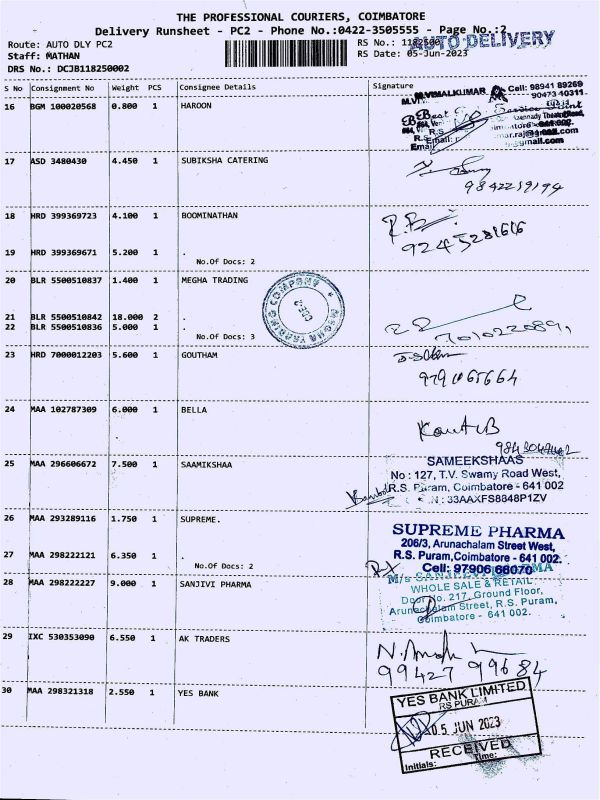 THE PROFESSIONAL COURIERS, COIMBATORE
Delivery Runsheet - PC2 - Phone No.:0422-3505555 - Page No.:2
Route: AUTO DLY PC2
RS No.:
AUTO DELIVERY
Staff: MATHAN
RS Date: 05-Jun-2023
DRS No.: DCJB118250002
S No Consignment No Weight PCS Consignee Details Signature
16 BGM 100020568 0.800 1 HAROON
M.VIMALKUMAR Cell: 98941 89269
90473 40311
17 ASD 3480430 4.450 1 SUBIKSHA CATERING
9842219194
18 HRD 399369723 4.100 1 BOOMINATHAN
R.B
9245281616
19 HRD 399369671 5.200 1 .
No.Of Docs: 2
20 BLR 5500510837 1.400 1 MEGHA TRADING
MEGHA TRADING COMPANY
CBE-2
21 BLR 5500510842 18.000 2 .
22 BLR 5500510836 5.000 1 .
No.Of Docs: 3
23 HRD 7000012203 5.600 1 GOUTHAM
24 MAA 102787309 6.000 1 BELLA
25 MAA 296606672 7.500 1 SAAMIKSHAA
SAMEEKSHAAS
No : 127, T.V. Swamy Road West,
R.S. Puram, Coimbatore - 641 002
: 33AAXFS8848P1ZV
26 MAA 293289116 1.750 1 SUPREME.
SUPREME PHARMA
206/3, Arunachalam Street West,
R.S. Puram, Coimbatore - 641 002.
Cell: 97906 66070
27 MAA 298222121 6.350 1 .
No.Of Docs: 2
28 MAA 298222227 9.000 1 SANJIVI PHARMA
M/s SANJIVI PHARMA
WHOLE SALE & RETAIL
Door No. 217, Ground Floor,
Arunachalam Street, R.S. Puram,
Coimbatore - 641 002.
29 IXC 530353090 6.550 1 AK TRADERS
99427 99684
30 MAA 298321318 2.550 1 YES BANK
YES BANK LIMITED
RS PURAM
05 JUN 2023
RECEIVED
Initials: Time: